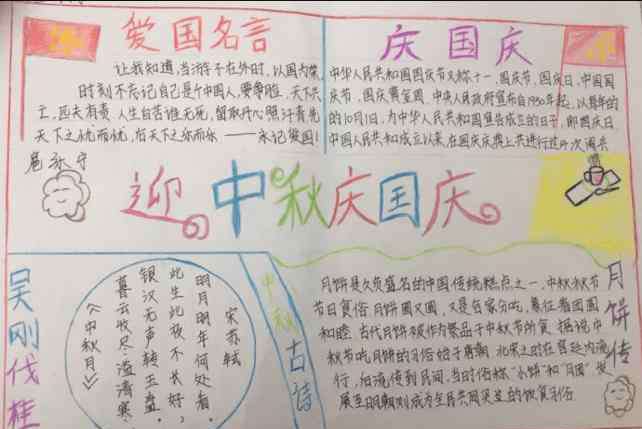 爱国名言
让我知道,当游子在外时,以国为荣
时刻不忘记自己是个中国人,要尊严,天下兴
亡,匹夫有责 人生自古谁无死,留取丹心照汗青先
天下之忧而忧,后天下之乐而乐——永记爱国!
庆国庆
中华人民共和国国庆节又称十一,国庆节,国庆日,中国国
庆节,国庆黄金周,中央人民政府宣布自1950年起,以每年的
的10月1日,为中华人民共和国宣告成立的日子,即国庆日,
中国人民共和成立以来,在国庆庆典上共进行过 次阅兵
迎中秋庆国庆
吴刚伐桂
宋苏轼
明月明年何处看。
此生此夜不长好,
银汉无声转玉盘。
暮云收尽溢清寒,
《中秋月》
中秋古诗
月饼传
月饼是久负盛名的中国传统糕点之一,中秋秋节
节日食俗 月饼圆又圆,又是合家分吃,象征着团圆
和睦 古代月饼被作为祭品于中秋节所食 据说中
秋节吃月饼的习俗始于唐朝 北宋之时在宫廷内流
行,后流传到民间,当时俗称"小饼"和"月团"发
展至明朝则成为全民共同 的饮食习俗